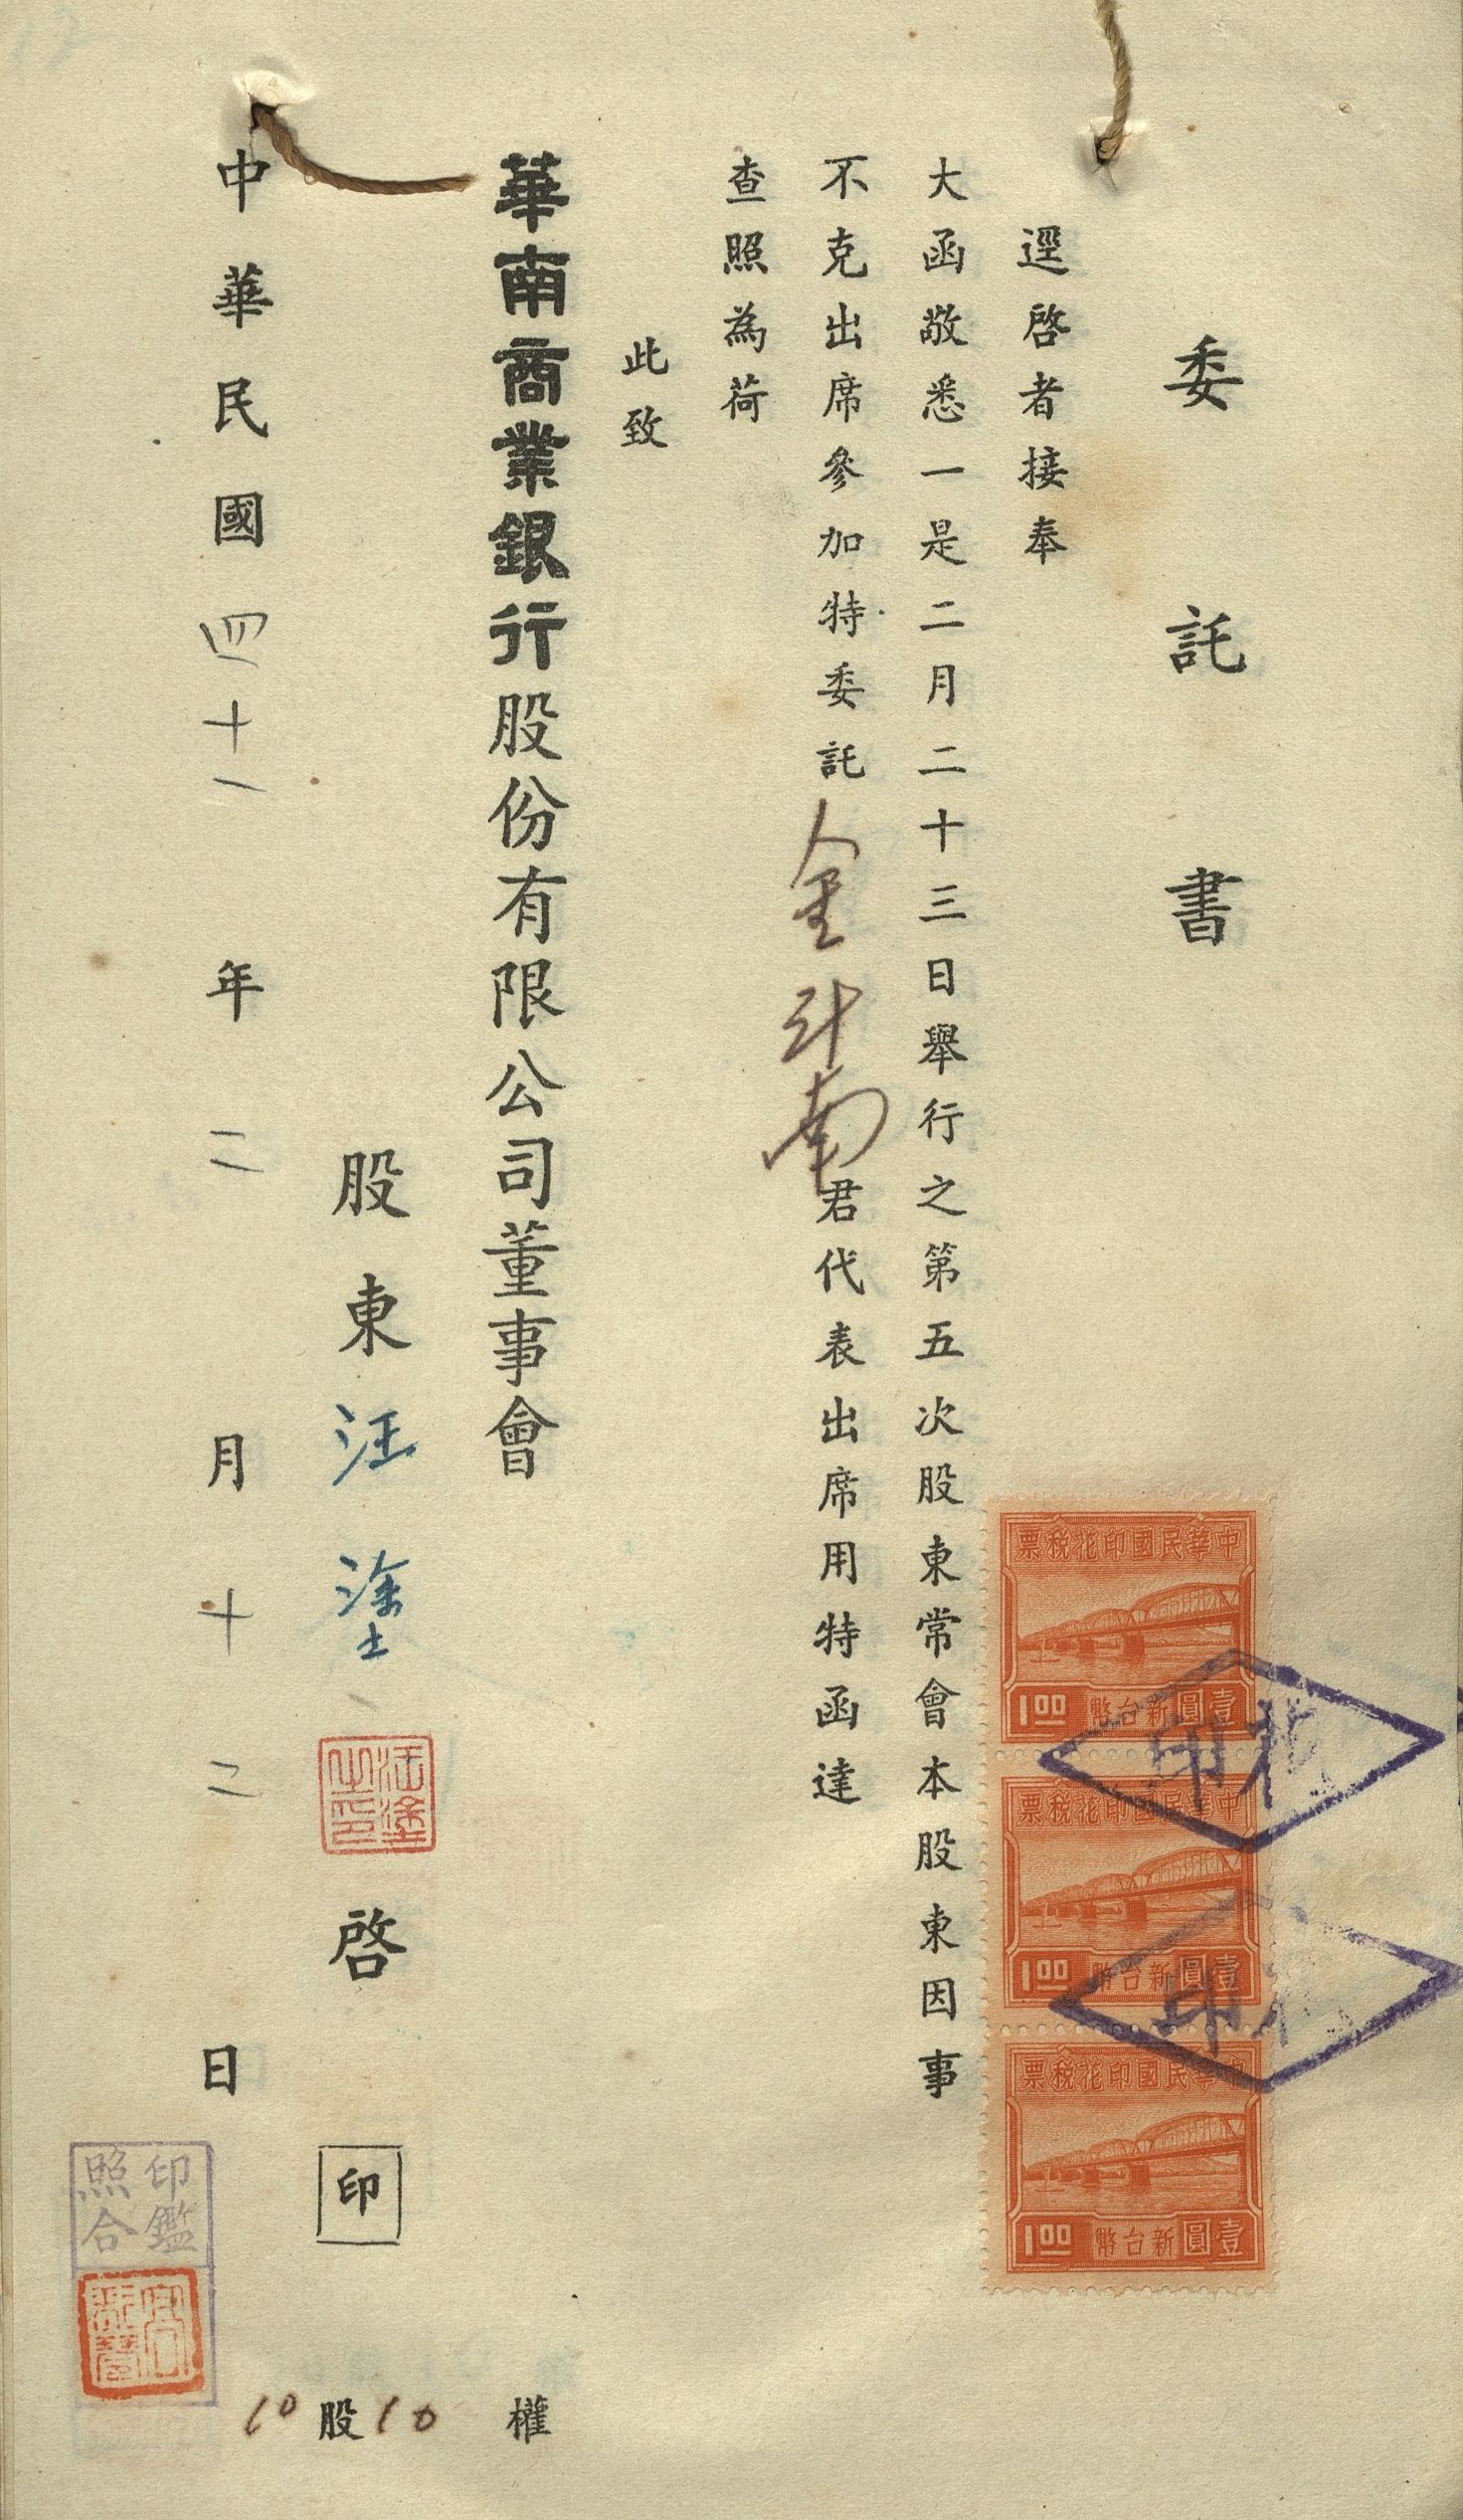 委託書
逕啓者接奉
大函敬悉一是二月二十三日舉行之第五次股東常會本股東因事
不克出席參加特委託金斗南君代表出席用特函達
查照為荷
此致
華南商業銀行股份有限公司董事會
股東汪塗啓印
汪塗之印
中華民國四十一年二月十二日
10股10權
印鑑
照合
中華民國印花稅票
1.00 壹圓新台幣
印花
中華民國印花稅票
1.00 壹圓新台幣
印花
中華民國印花稅票
1.00 壹圓新台幣